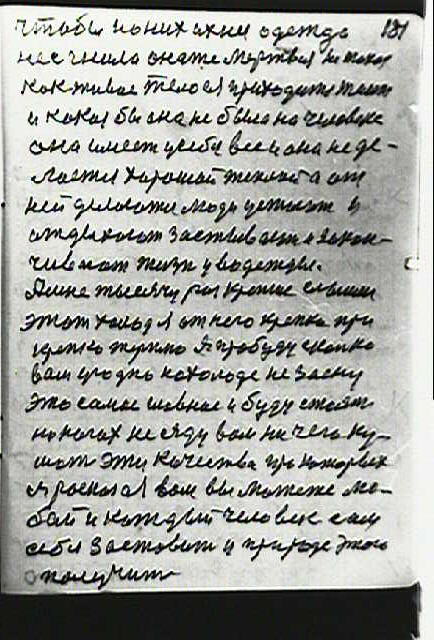 чтобы на них ихняя одежда 131
не сгнила она же мертвая не такая
как живое тело а приходится
и какая бы она не была на человеке
она имеет у себя вес и она не де-
лается хорошой теплой а от
ней делаются люди устают и
отдыхают заставляет и закан-
чивают жизнь у водежды.
А мне тысячу раз крепше
этот холод я от него крепко при
сколко
вам угодно на холоде не засну
это самое главное и буду стоять
на ногах не сяду вам ни чего ку-
шать эти качества про которых
я рассказал вам вы можете лю-
бой и каждый человек сам
себя заставит и природе этого
получит